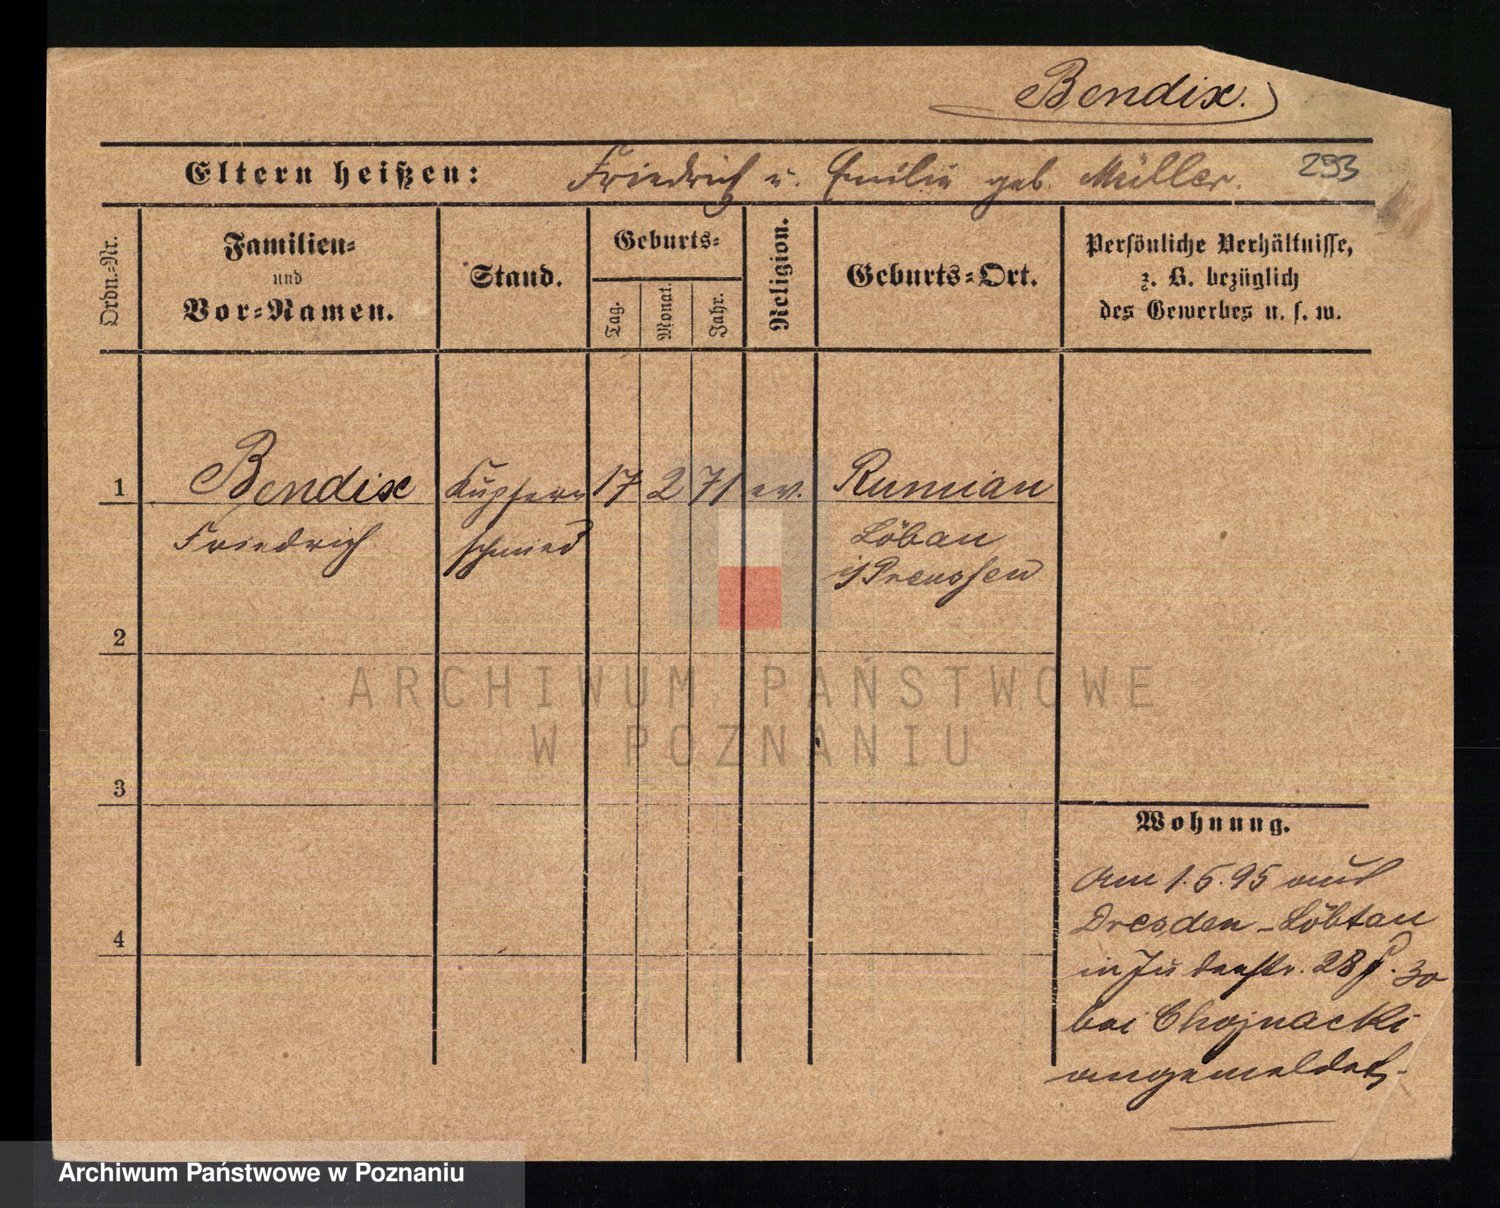 Bendix.
Eltern heißen: Friedrich u. Emilie geb. Müller.
293
Ordn.-Nr.
Familien-
und
Vor-Namen.
Stand.
Geburts-
Tag.
Monat.
Jahr.
Religion.
Geburts-Ort.
Persönliche Verhältnisse,
z. B. bezüglich
des Gewerbes u. s. w.
1 Bendix Kupfer- 17 2 71 ev. Rumian
Friedrich schmied Löbau
Preussen
2
3
4
ARCHIWUM PAŃSTWOWE
W POZNANIU
Wohnung.
Am 1.6.95 aus
Dresden-Löbtau
in Judenstr. 28 30
bei Chojnacki
angemeldet.
Archiwum Państwowe w Poznaniu